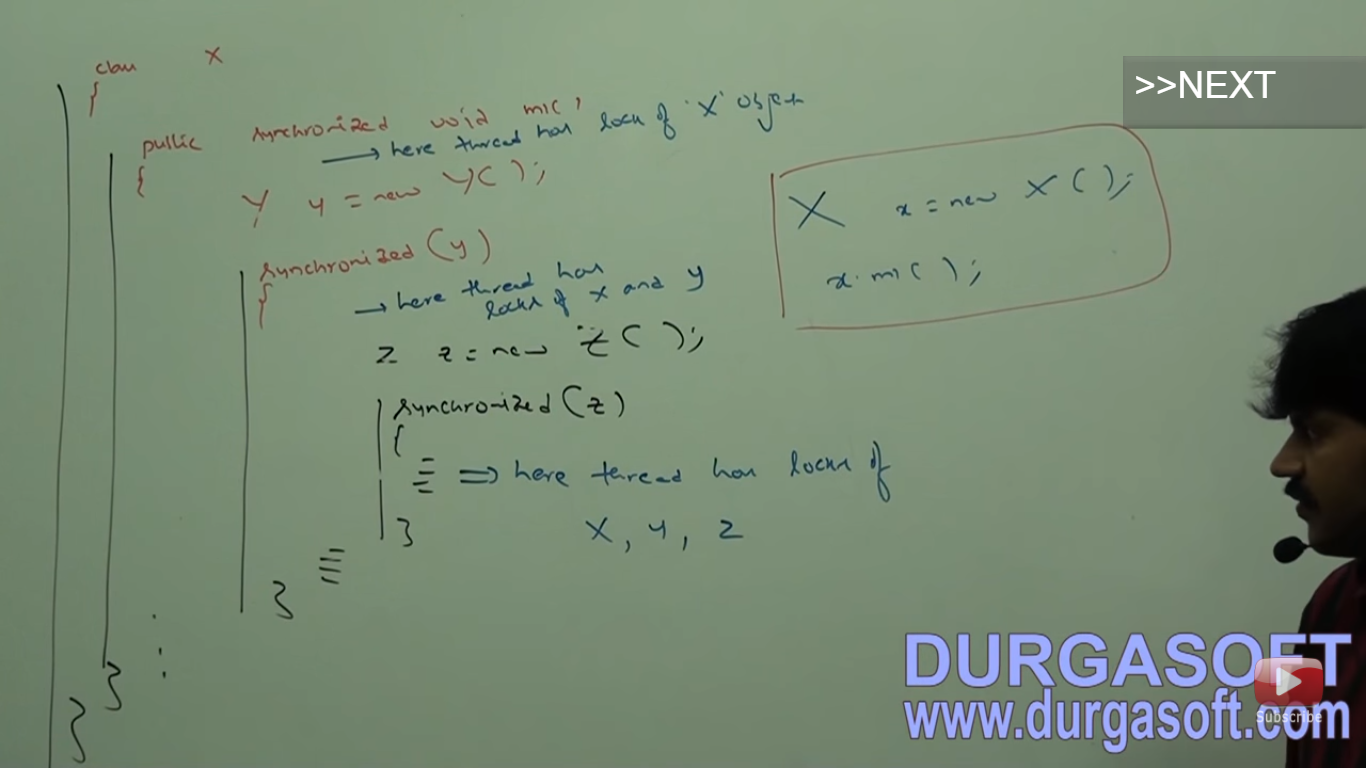 class X
{
public synchronized void m1( )
→ here thread has lock of 'X' object
{
Y y = new Y( );
synchronized (y)
{
→ here thread has
locks of X and y
Z z = new Z( );
synchronized (z)
{
⇒ here thread has locks of
X, Y, Z
}
}
}
}
X x = new X( );
x.m1( );
>>NEXT
DURGASOFT
www.durgasoft.com
Subscribe